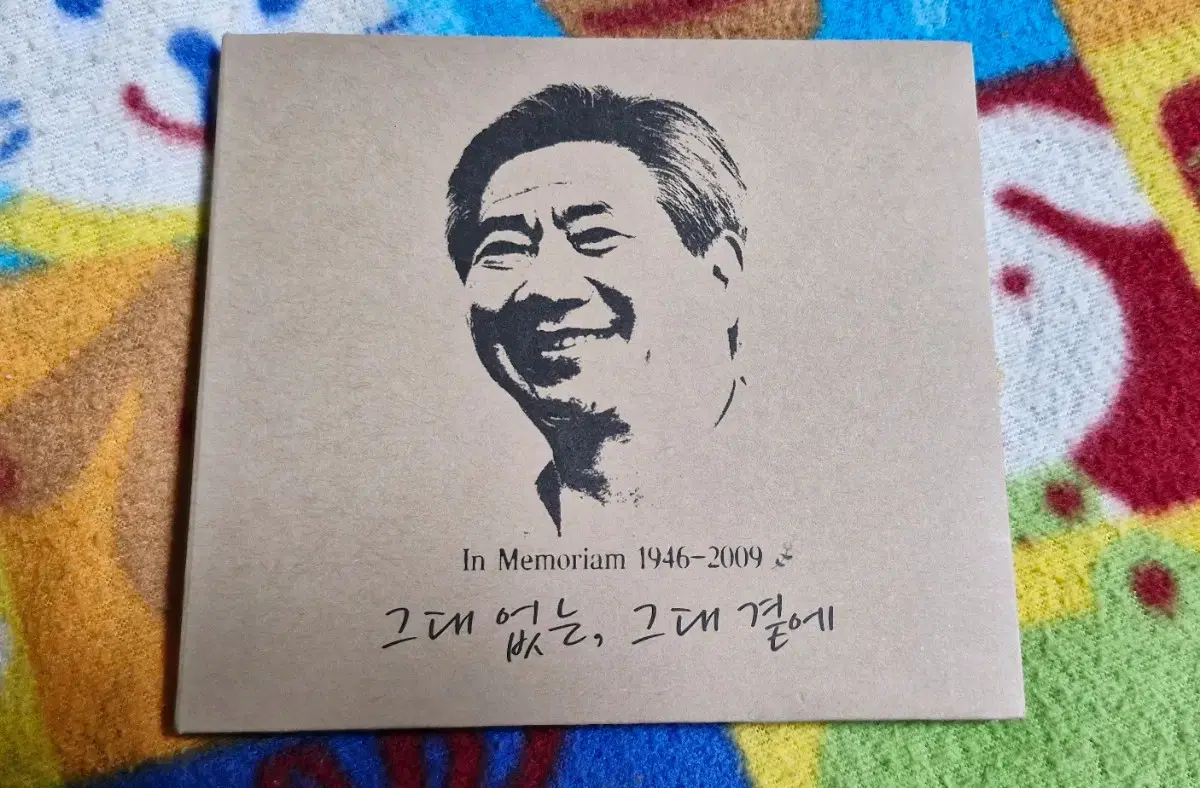 In Memoriam 1946-2009
그대 없는, 그대 곁에